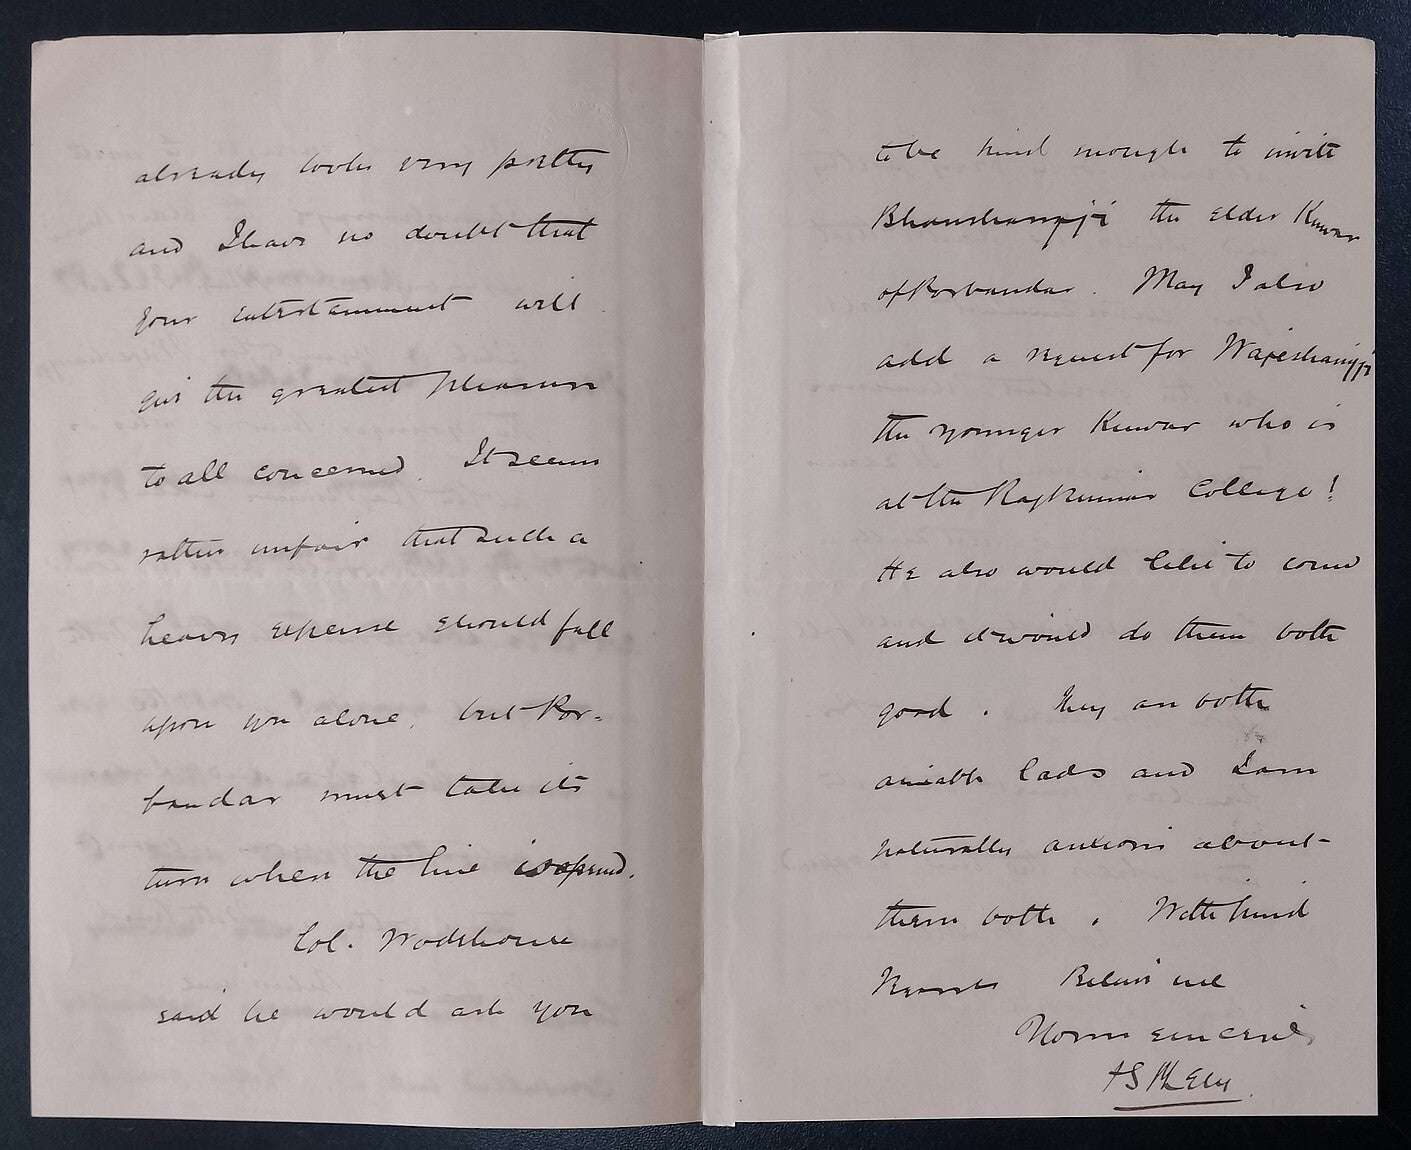 already looks very pretty
and I have no doubt that
your entertainment will
give the greatest pleasure
to all concerned. It seems
rather unfair that such a
heavy expense should fall
upon you alone, but Por-
bandar must take its
turn when the line is opened.
Col. Wodehouse
said he would ask you
to be kind enough to invite
Bhawshangji the elder Kuwar
of Porbandar. May I also
add a request for Wajeshangji
the younger Kuwar who is
at the Rajkumar College!
He also would like to come
and it would do them both
good. They are both
amiable lads and I am
naturally anxious about
them both. With kind
Regards Believe me
Yours sincerely